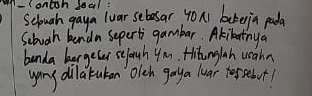 Contoh Soal:
Sebuah gaya luar sebesar 40 N bekerja pada
sebuah benda seperti gambar. Akibatnya
benda bergeser sejauh 4m. Hitunglah usaha
yang dilakukan oleh gaya luar tersebut!